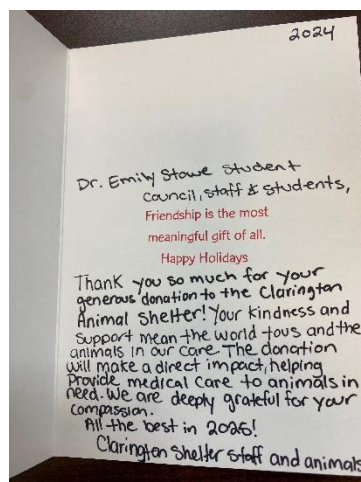 2024
Dr. Emily Stowe Student
council, staff & students,
Friendship is the most
meaningful gift of all.
Happy Holidays
Thank you so much for your
generous donation to the Clarington
Animal Shelter! Your kindness and
support mean the world to us and the
animals in our care. The donation
will make a direct impact, helping
Provide medical care to animals in
need. We are deeply grateful for your
compassion.
All the best in 2025!
Clarington Shelter staff and animals